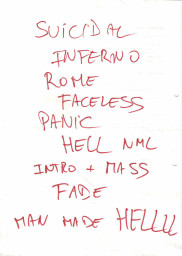 SUICIDAL
INFERNO
ROME
FACELESS
PANIC
HELL NML
INTRO + MASS
FADE
MAN MADE HELLLL